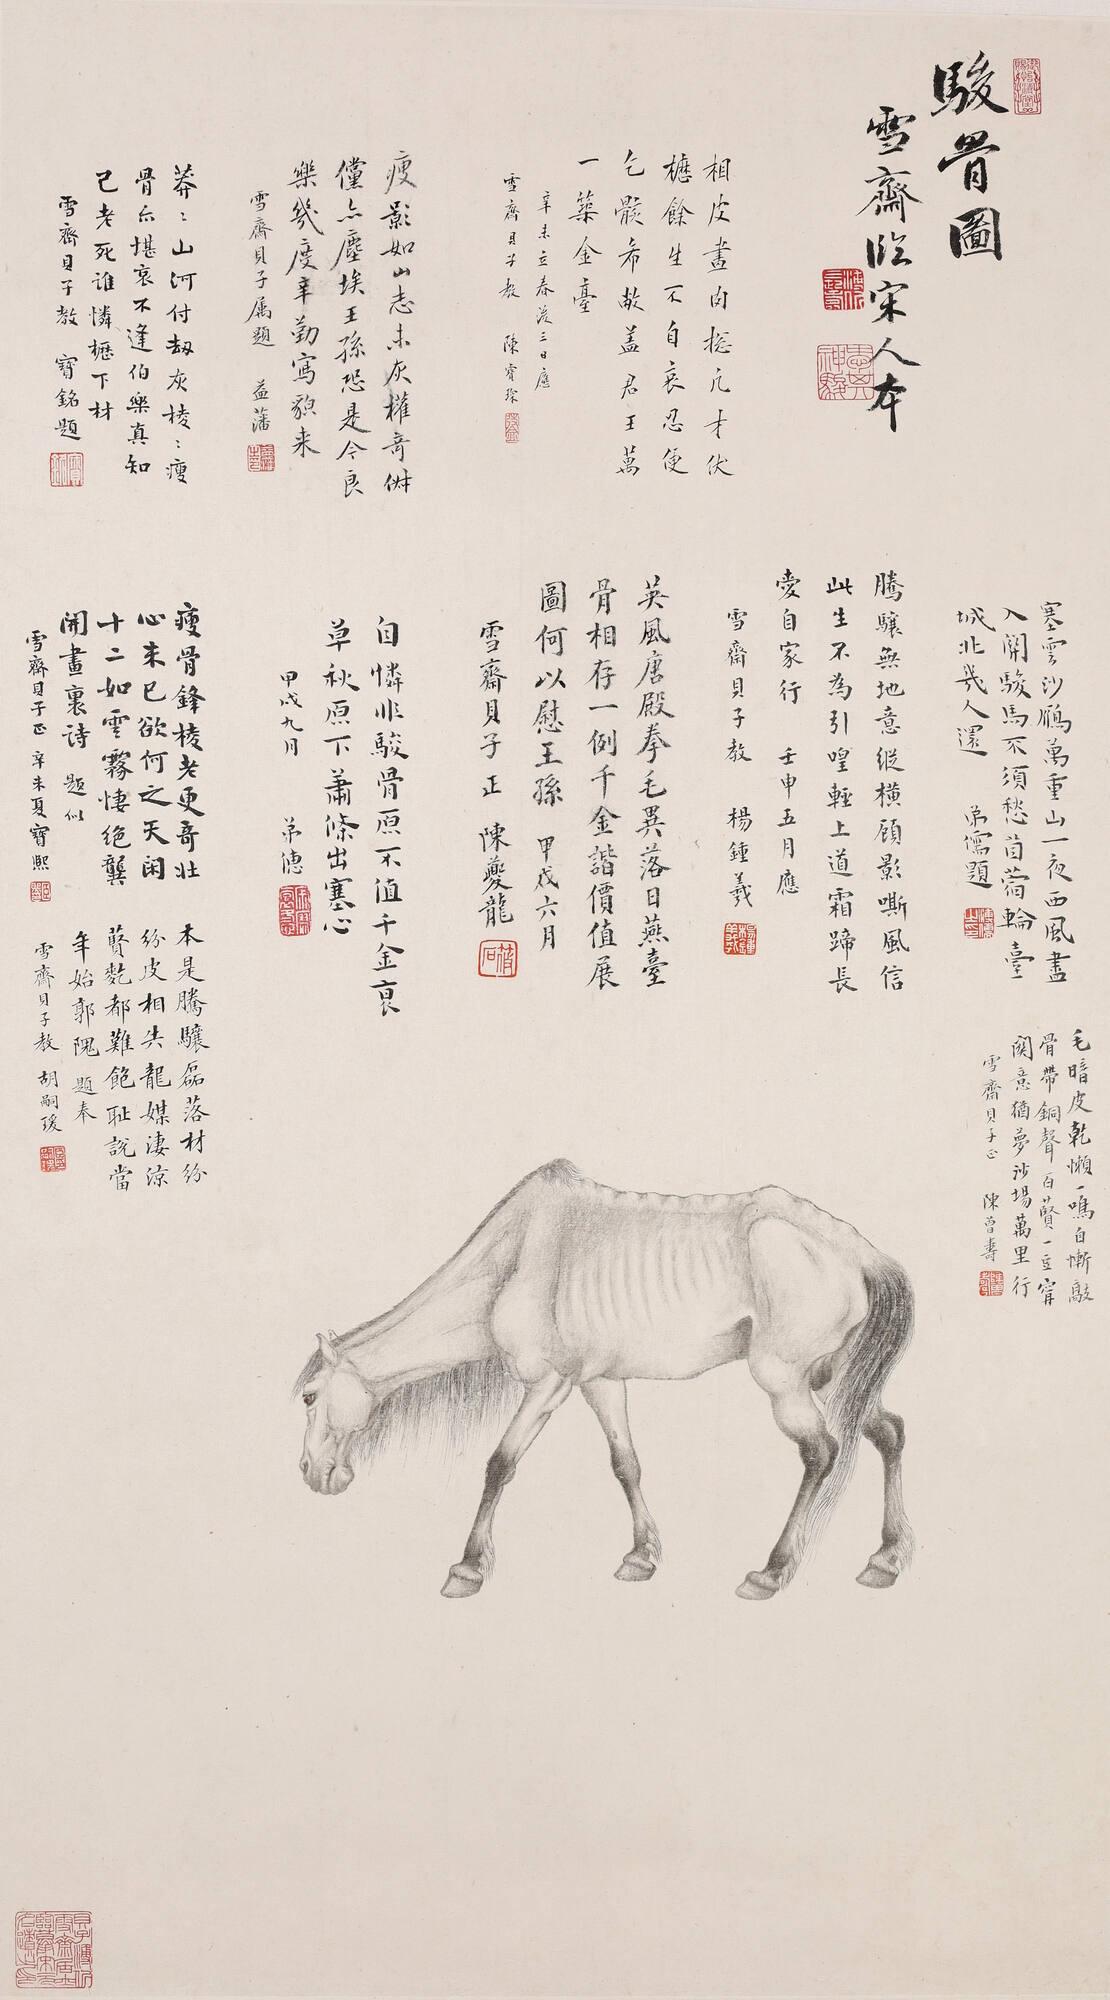 駿骨圖
雪齋臨宋人本
相皮畫肉總凡才伏
櫪餘生不自哀忍便
乞骸希敝蓋君王萬
一築金臺
辛未立春後三日應
雪齋貝子教 陳曾
瘦影如山志未灰權奇倜
儻亦塵埃王孫恐是今良
樂幾度辛勤寫貌來
雪齋貝子属題 益藩
莽〻山河付劫灰棱〻瘦
骨亦堪哀不逢伯樂真知
己老死誰憐櫪下材
雪齋貝子教 寶銘題
寒雲沙雁萬重山一夜西風盡
入關駿馬不須愁苜蓿輪臺
城北幾人還 弟儒題
騰驤無地意縱橫顧影嘶風信
此生不為引喤輕上道霜蹄長
愛自家行 壬申五月應
雪齋貝子教 楊鍾羲
英風唐殿拳毛異落日燕臺
骨相存一例千金諧價值展
圖何以慰王孫 甲戌六月
雪齋貝子正 陳夔龍
自憐非駿骨原不值千金衰
草秋原下蕭條出塞心
甲戌九月 弟僡
瘦骨鋒棱老更奇壯
心未已欲何之天閑
十二如雲霧悽絕龔
開畫裏詩 題似
雪齋貝子正 辛未夏寶熙
本是騰驤磊落材紛
紛皮相失龍媒淒涼
蕡麧都難飽恥說當
年始郭隗 題奉
雪齋貝子教 胡嗣瑗
毛暗皮乾懶一鳴自慚敲
骨帶銅聲百蕡一豆寧
關意猶夢沙場萬里行
雪齋貝子正 陳曾壽